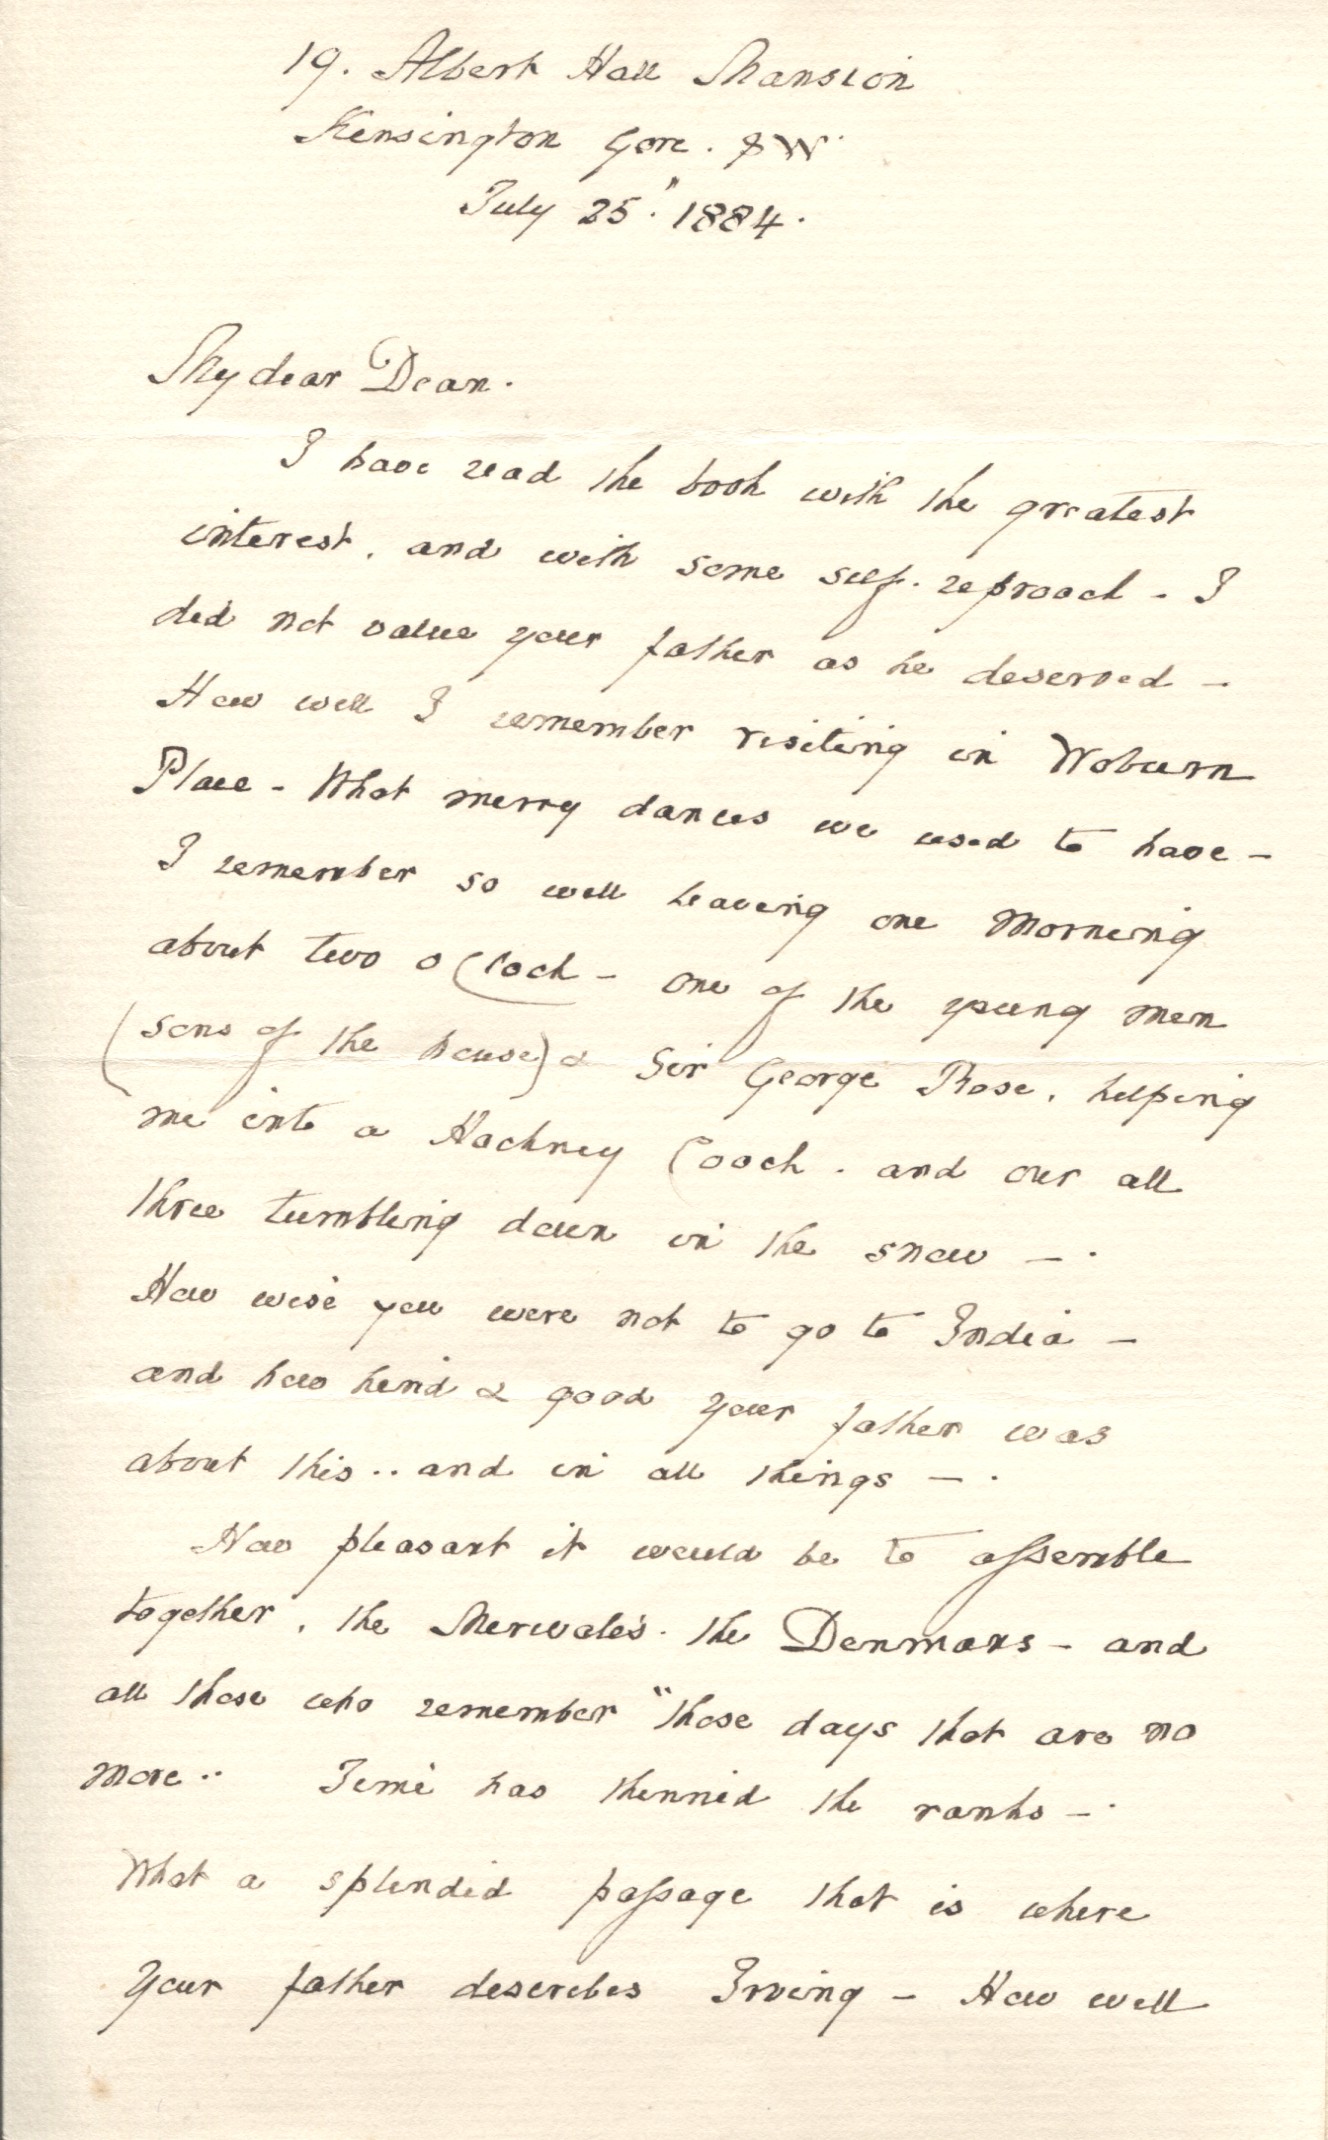 19. Albert Hall Mansion
Kensington Gore. SW.
July 25". 1884.
My dear Dean.
I have read the book with the greatest
interest, and with some self-reproach - I
did not value your father as he deserved -
How well I remember visiting in Woburn
Place - What merry dances we used to have -
I remember so well leaving one Morning
about two o Clock - one of the young men
(sons of the house) & Sir George Rose, helping
me into a Hackney Coach. and our all
three tumbling down in the snow - .
How wise you were not to go to India -
and how kind & good your father was
about this .. and in all things - .
How pleasant it would be to assemble
together, the Merivales. the Denmans - and
all those who remember "those days that are no
more .. Time has thinned the ranks - .
What a splendid passage that is where
your father describes Irving - How well